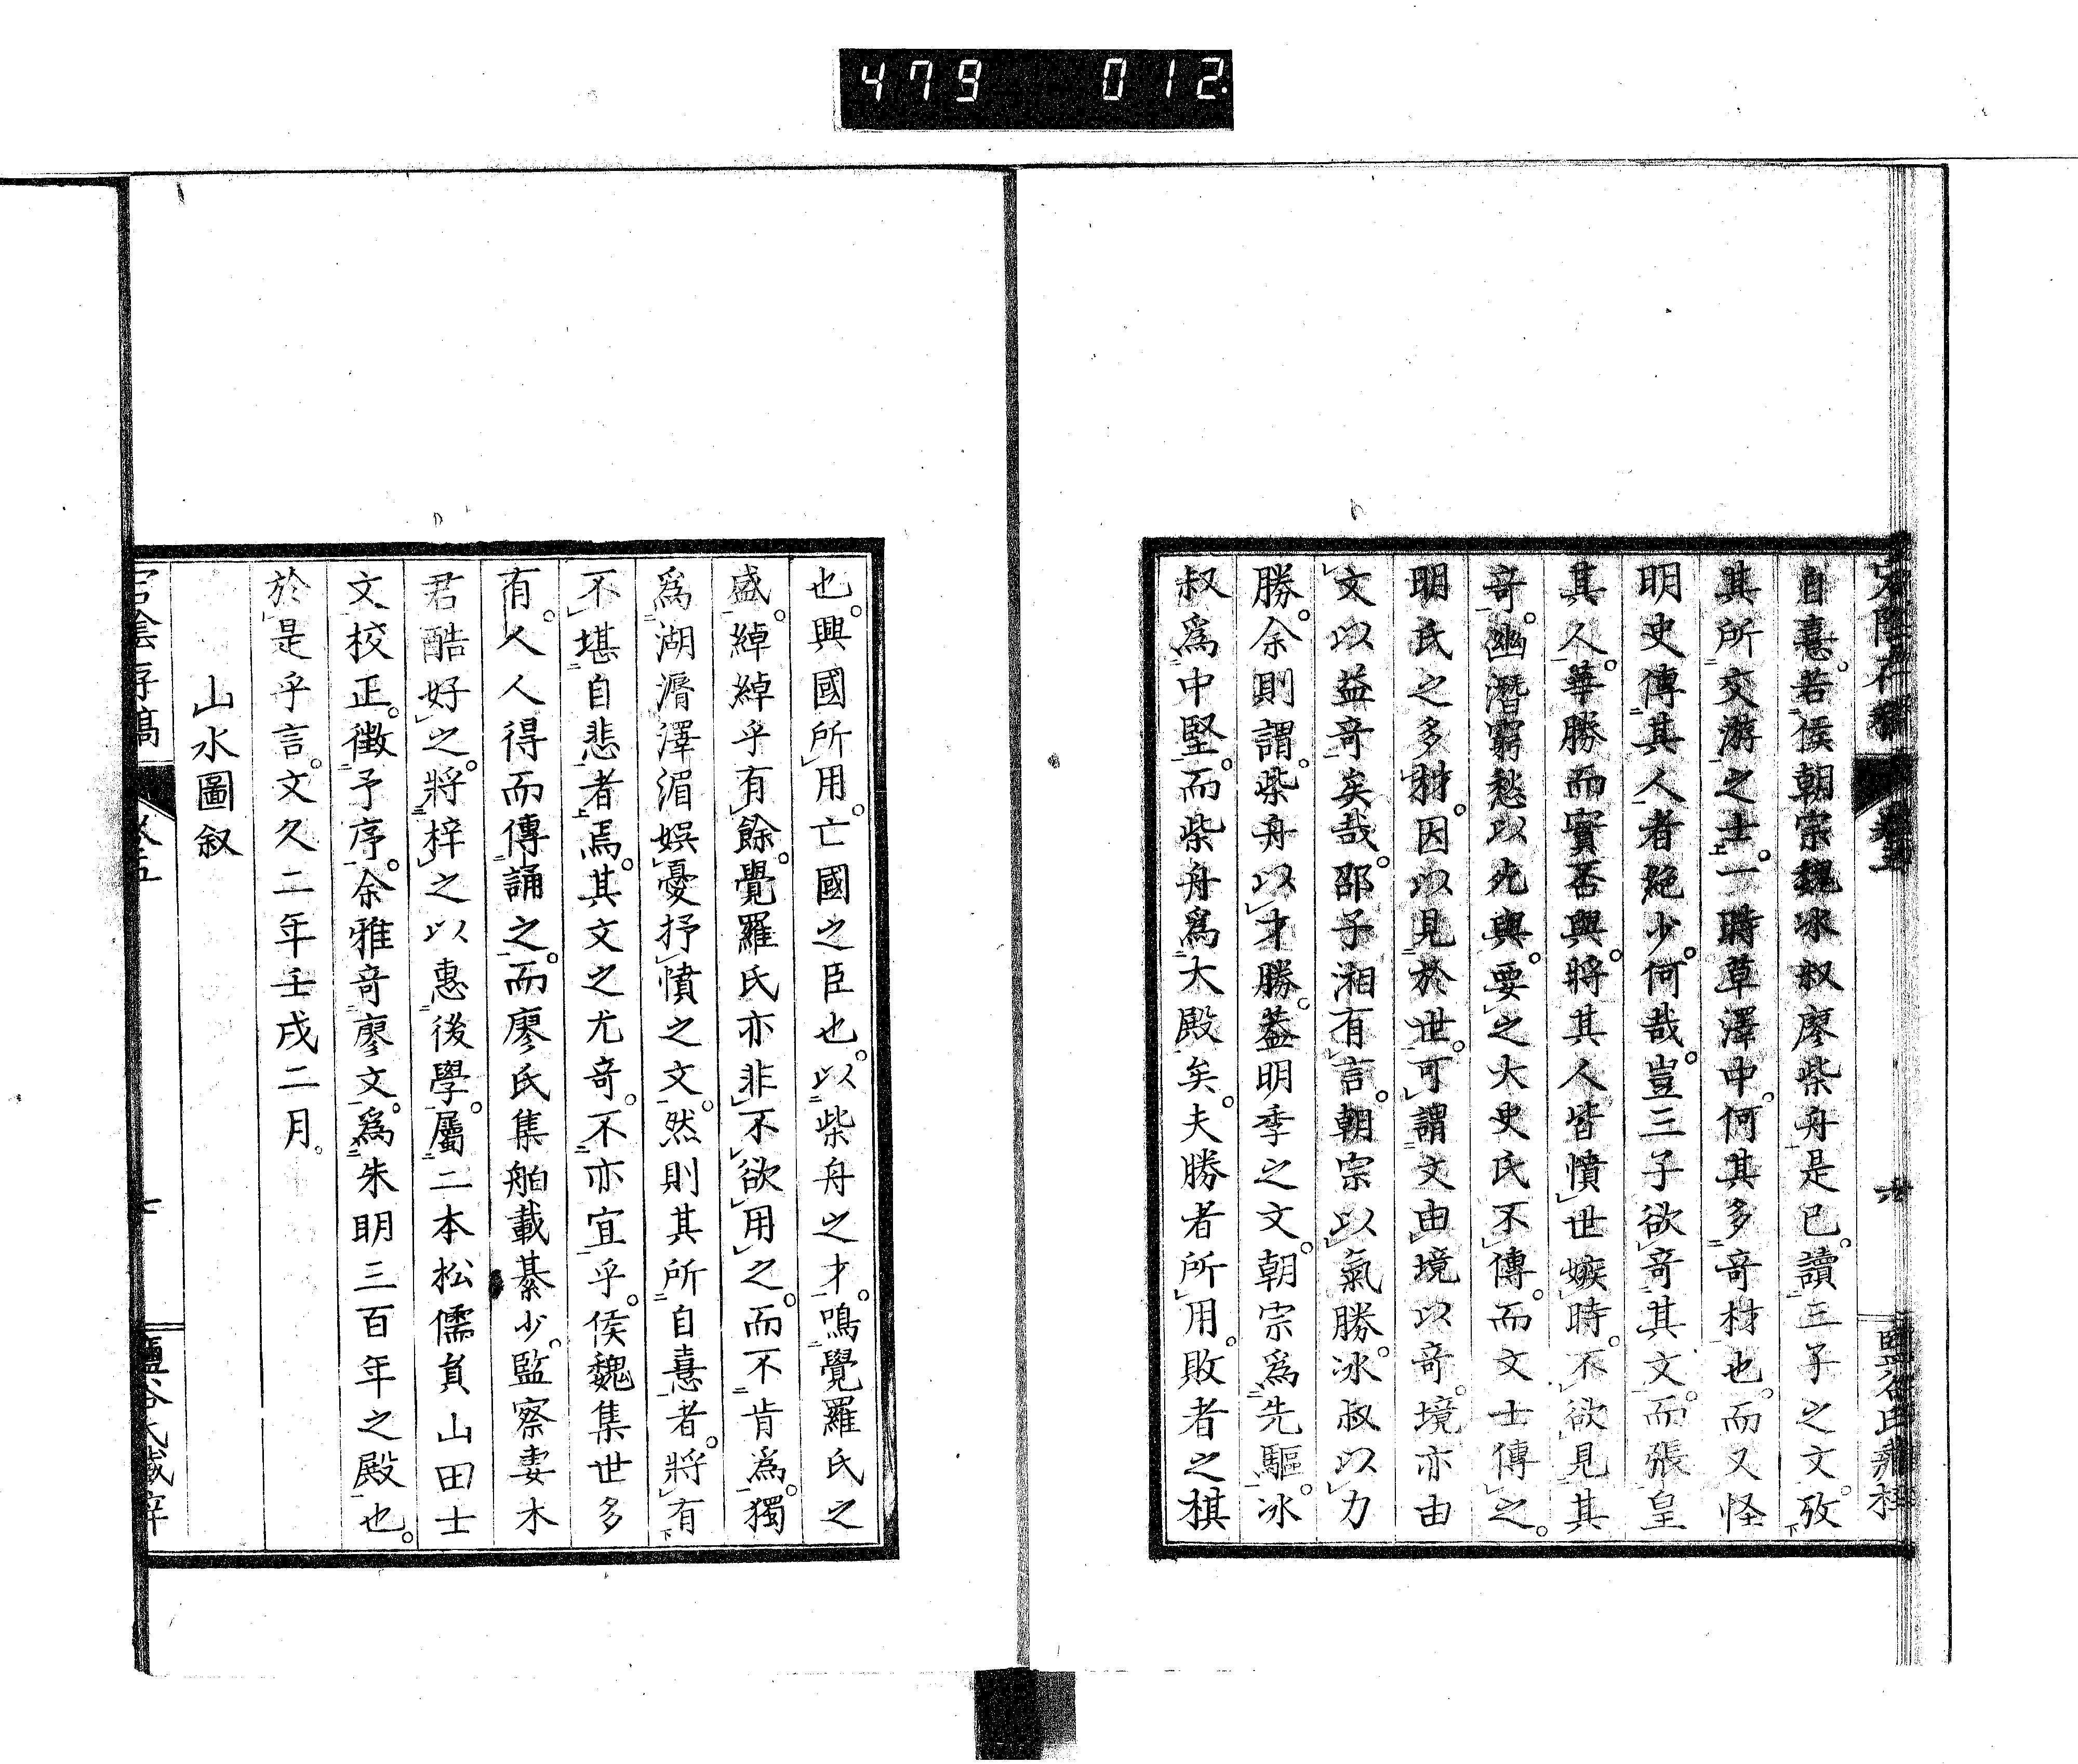 479 012
自憙。若侯朝宗魏冰叔廖柴舟是已。讀三子之文。攷
其所交游之士。一時草澤中。何其多奇材也。而又怪
明史傳其人者絶少。何哉。豈三子欲奇其文。而張皇
其人。華勝而實否與。將其人皆憤世嫉時。不欲見其
奇。幽潛窮愁以死與。要之大史氏不傳。而文士傳之。
明氏之多材。因以見於世。可謂文由境以奇。境亦由
文以益奇矣哉。邵子湘有言。朝宗以氣勝。冰叔以力
勝。余則謂。柴舟以才勝。蓋明季之文。朝宗爲先驅。冰
叔爲中堅。而柴舟爲大殿矣。夫勝者所用。敗者之棋
也。興國所用。亡國之臣也。以柴舟之才。鳴覺羅氏之
盛。綽綽乎有餘。覺羅氏亦非不欲用之。而不肯爲。獨
爲湖漘澤湄娯憂抒憤之文。然則其所自憙者。將有
不堪自悲者焉。其文之尤奇。不亦宜乎。侯魏集世多
有。人人得而傳誦之。而廖氏集舶載綦少。監察妻木
君酷好之。將梓之以惠後學。屬二本松儒員山田士
文校正。徵予序。余雅奇廖文。爲朱明三百年之殿也。
於是乎言。文久二年壬戌二月。
山水圖叙